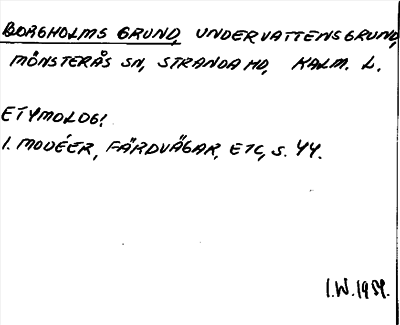 BORGHOLMS GRUND, UNDERVATTENSGRUND,
MÖNSTERÅS SN, STRANDA HD, KALM. L.
ETYMOLOGI
I. MODÉER, FÄRDVÄGAR, ETC, S. 44.
I.W. 1959.